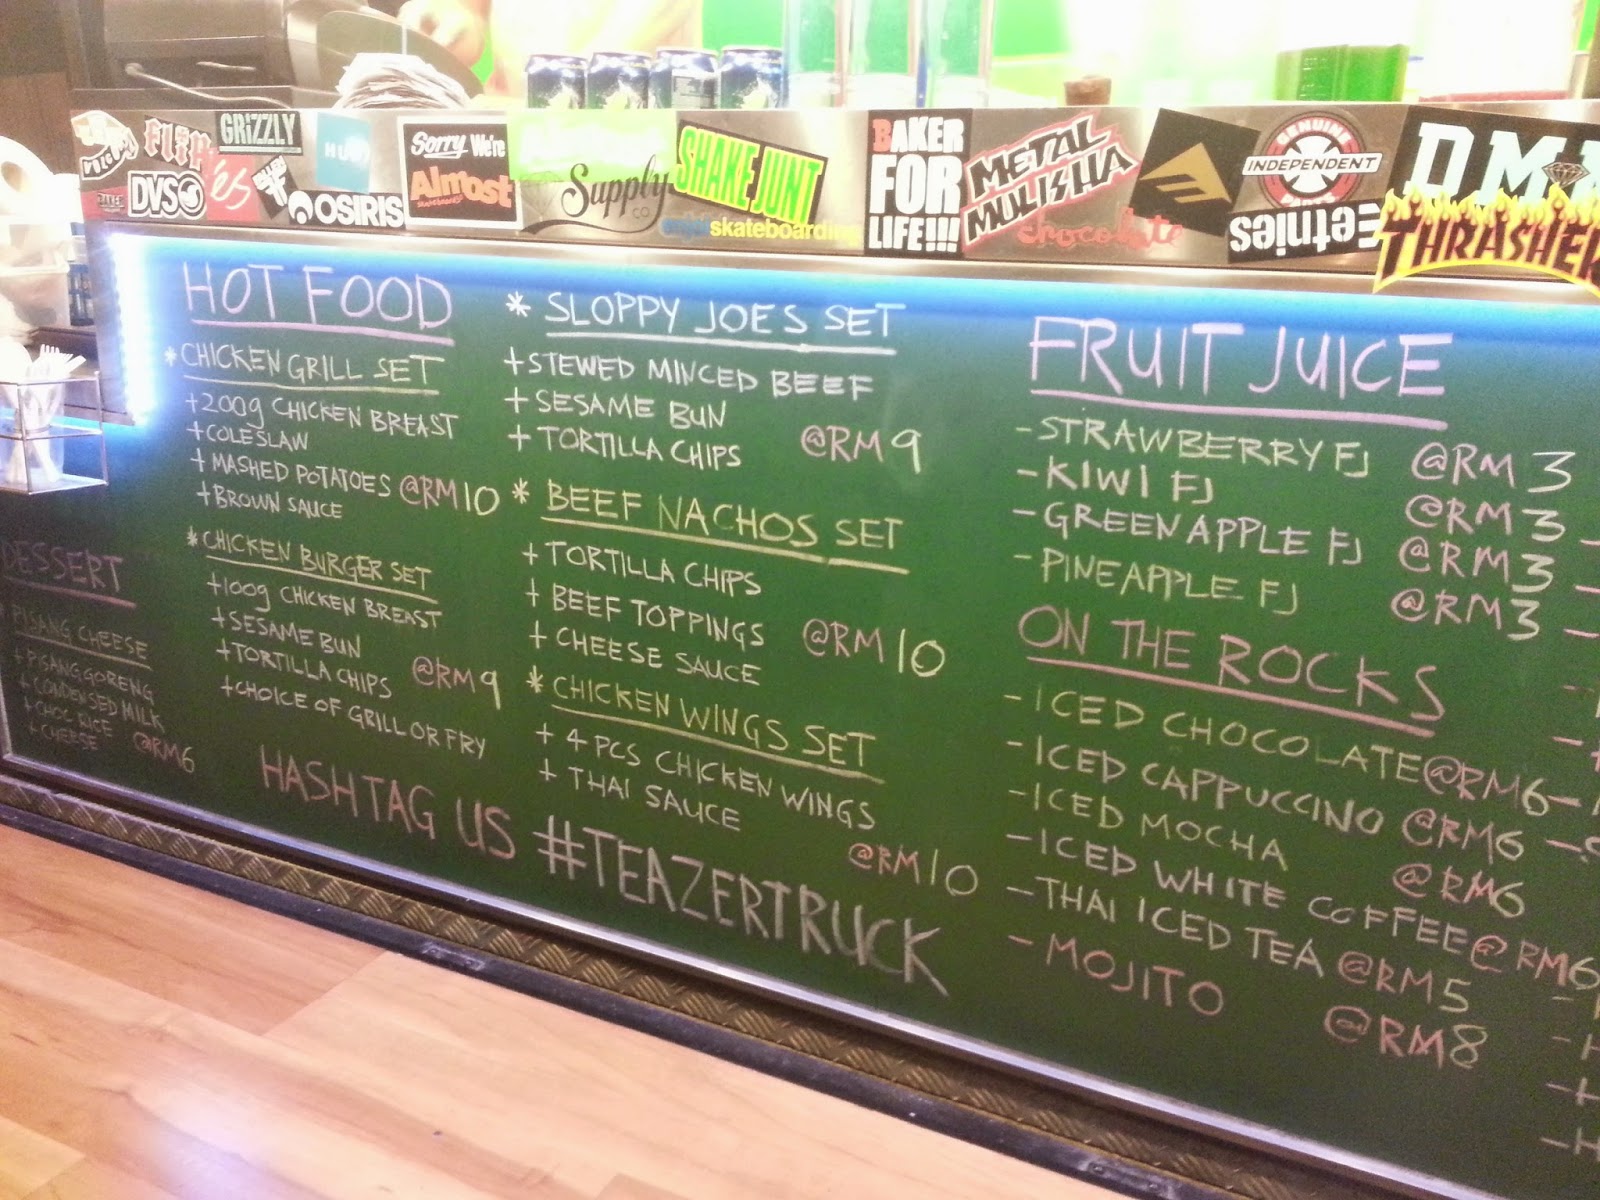 GRIZZLY
FLIP
DVS
és
HUF
OSIRIS
Sorry We're
Almost
Supply
CO
SHAKE JUNT
skateboarding
BAKER
FOR
LIFE!!!
METAL
MULISHA
chocolate
GENUINE
INDEPENDENT
PARTS
etnies
DMN
THRASHER
HOT FOOD
* CHICKEN GRILL SET
+200g CHICKEN BREAST
+COLESLAW
+MASHED POTATOES @RM10
+BROWN SAUCE
* CHICKEN BURGER SET
+100g CHICKEN BREAST
+SESAME BUN
+TORTILLA CHIPS @RM9
+CHOICE OF GRILL OR FRY
DESSERT
* PISANG CHEESE
+PISANG GORENG
+CONDENSED MILK
+CHOC RICE
+CHEESE @RM6
* SLOPPY JOES SET
+STEWED MINCED BEEF
+SESAME BUN
+TORTILLA CHIPS @RM9
* BEEF NACHOS SET
+TORTILLA CHIPS
+BEEF TOPPINGS @RM10
+CHEESE SAUCE
* CHICKEN WINGS SET
+4 PCS CHICKEN WINGS
+THAI SAUCE
@RM10
HASHTAG US #TEAZERTRUCK
FRUIT JUICE
-STRAWBERRY FJ @RM3
-KIWI FJ @RM3
-GREEN APPLE FJ @RM3
-PINEAPPLE FJ @RM3
ON THE ROCKS
-ICED CHOCOLATE @RM6
-ICED CAPPUCCINO @RM6
-ICED MOCHA @RM6
-ICED WHITE COFFEE @RM6
-THAI ICED TEA @RM5
-MOJITO @RM8